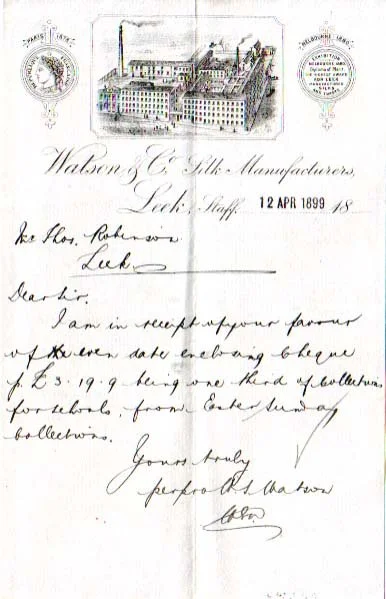 PARIS 1878
MELBOURNE 1880
EXHIBITION
MELBOURNE 1880
FOR LEEK
MANUFACTURED
SILKS
Watson & Co. Silk Manufacturers,
Leek, Staff. 12 APR 1899 18
Mr Thos. Robinson
Leek
Dear Sir.
I am in receipt of your favour
of the even date enclosing Cheque
p. £3.19.9 being one third of Collections
for schools, from Easter Sunday
Collections.
Yours truly
perpro W.S. Watson